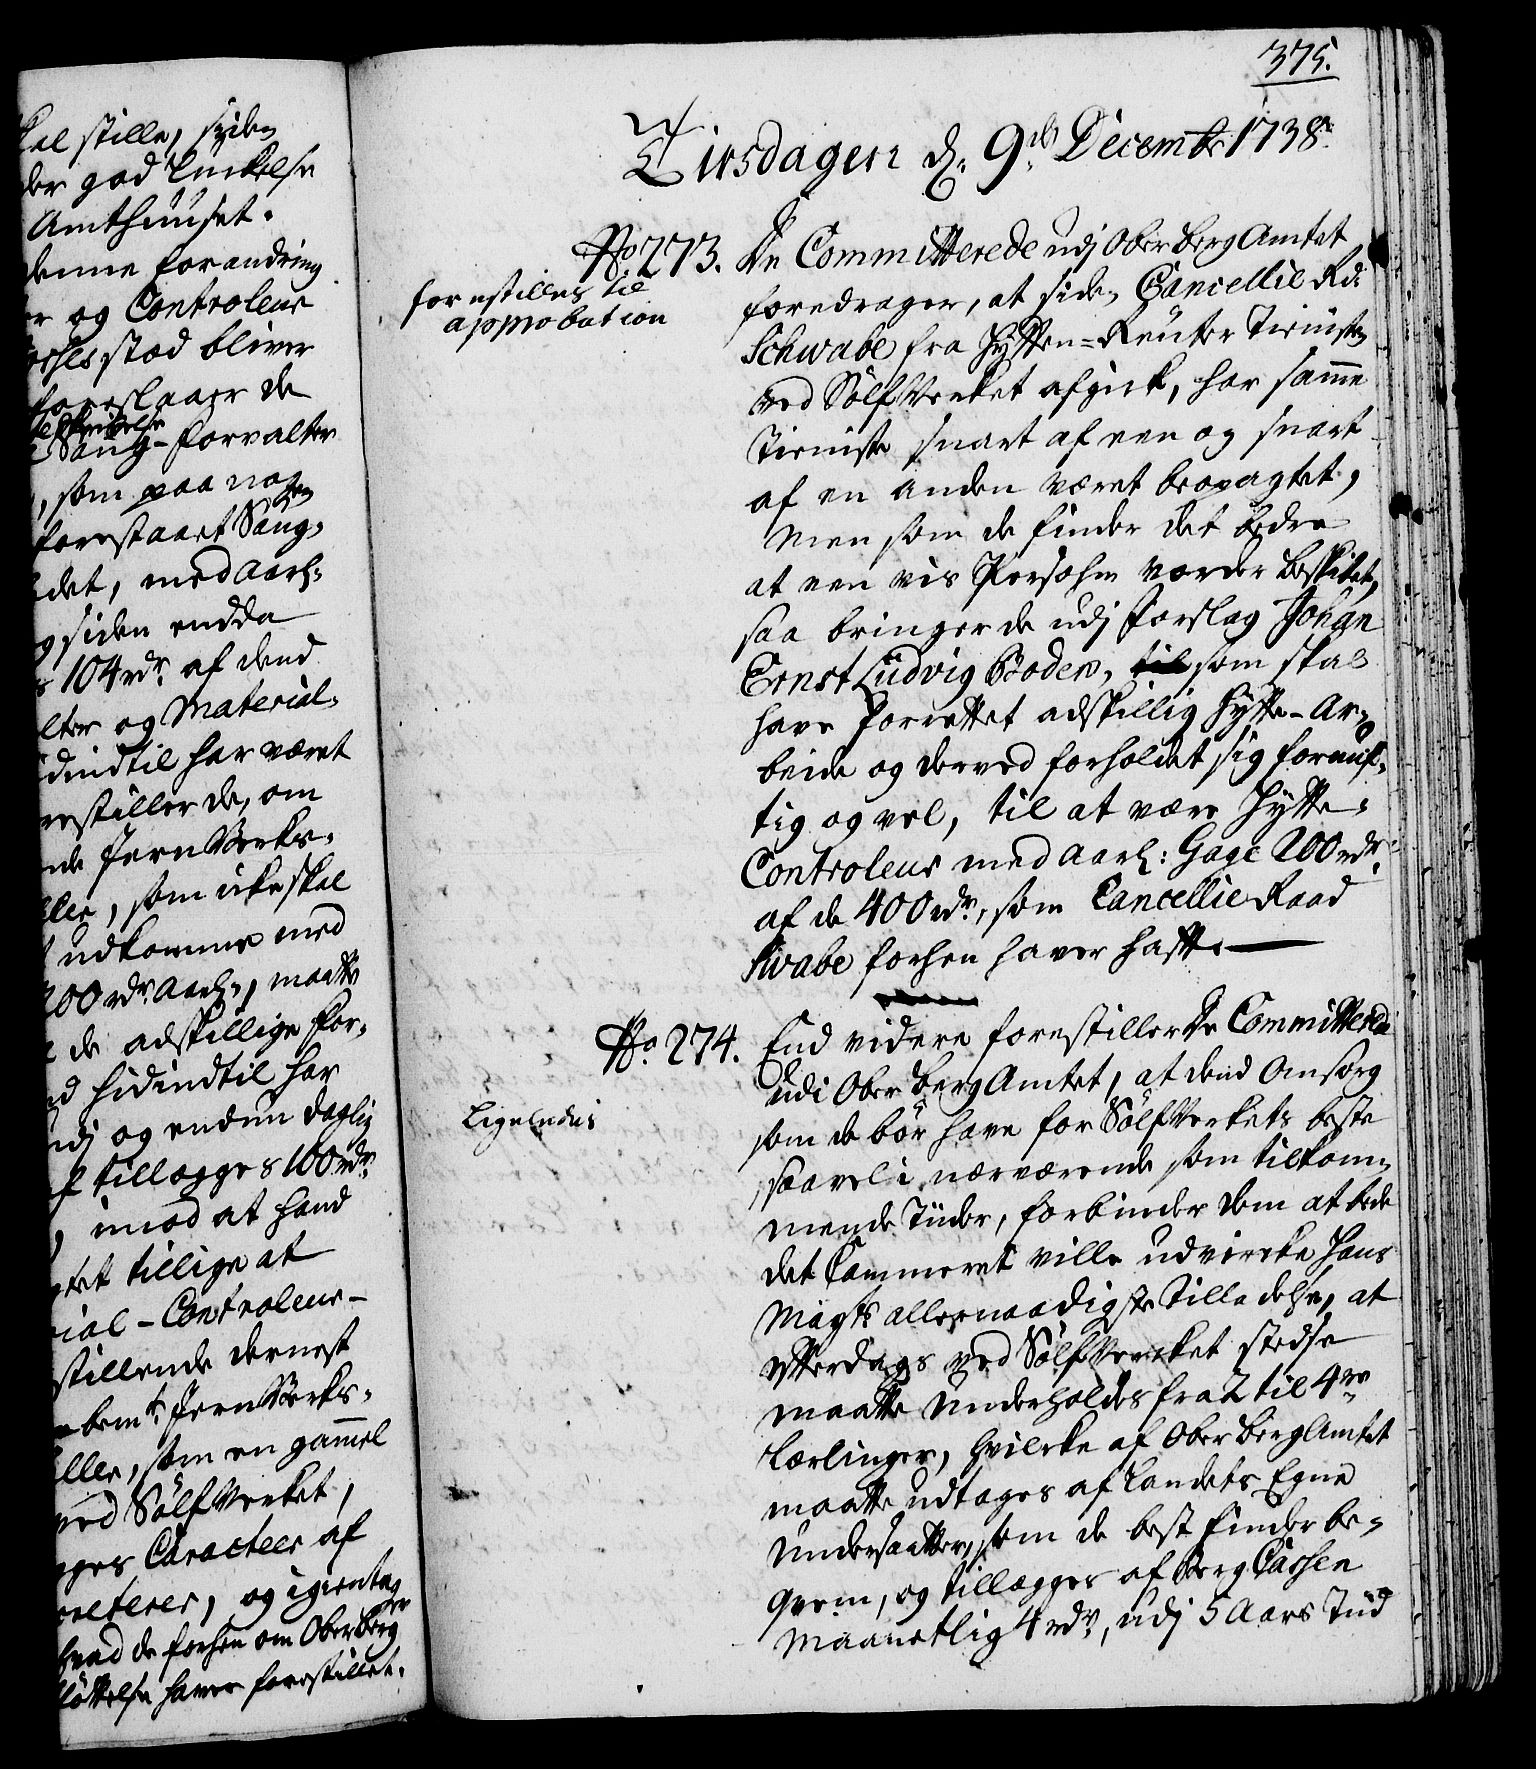 kal stille, siden
der god Luckelse
Amthuuset.
denne forandring
er og Controleur
stæd bliver
foreslaaer de
Saug-forvalter
, som paa nogen
forestaaet Saug,
det, med aarl:
g siden endda
104 rdr. af dend
lter og Material,
idindtil har været
restiller de, om
nde Jern Verks,
ller, som icke skal
udkomme med
200 rdr. aarl:, maatte
de adskillige for,
d hidindtil har
udj og endnu daglig
tillægges 100 rdr.
, imod at hand
tet tillige at
ial-Controleur-
stillende dernest
bemte Jern Verks-
ller, som en gammel
ved SølfVerket,
ages Caracteer af
, og igientager
hvad de forhen om Oberberg
haver forestillet.
375.
Tirsdagen d: 9de Decembr 1738.
No. 273. De Committerede udj OberBergAmtet
forestilles til
approbation
foredrager, at siden Cancellie Rd:
Schwabe fra Hytten-Reuter Tieniste
ved SølfVerket afgick, har samme
Tieniste snart af een og snart
af en anden været beopagtet,
Men som de finder det bedre
at een vis Persohn vorder beskiket,
saa bringer de udj forslag Johan
Ernst Ludvig Boden, til som skal
have forrettet adskillig Hytte-Ar,
beide og derved forholdet sig fornuf,
tig og vel, til at være Hytte,
Controleur med aarl: Gage 200 rdr.
af de 400 rdr., som Cancellie Raad
Swabe forhen haver hafft.
No. 274. End videre forestiller De Committerede
udi OberBergAmtet, at dend Omsorg
Ligeledes
som de bør have for SølfVerkets beste
saavel i nærværende som tilkom,
mende Tiider, forbinder dem at bede
det Cammeret ville udvircke Hans
Mayts allernaadigste Tilladelse, at
ydterdags ved SølfVercket stedse
maatte Underholdes fra 2 til 4re
Lærlinger, hvilcke af OberBergAmtet
maatte udtages af Landets Egne
Undersaatter, som de best finder be,
qvem, og tillægges af Berg Cassen
Maanetlig 4 rdr., udj 5 Aars Tiid